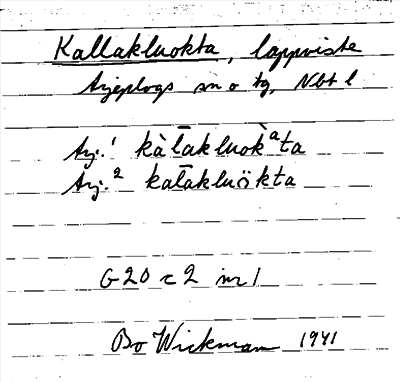 Kallakluokta, lappviste
Arjeplogs sn o tg, Nbt l
Arj.¹ kàl̄akluokᵃta
Arj.² kal̄akluökta
G20 c2 nr 1
Bo Wickman 1941